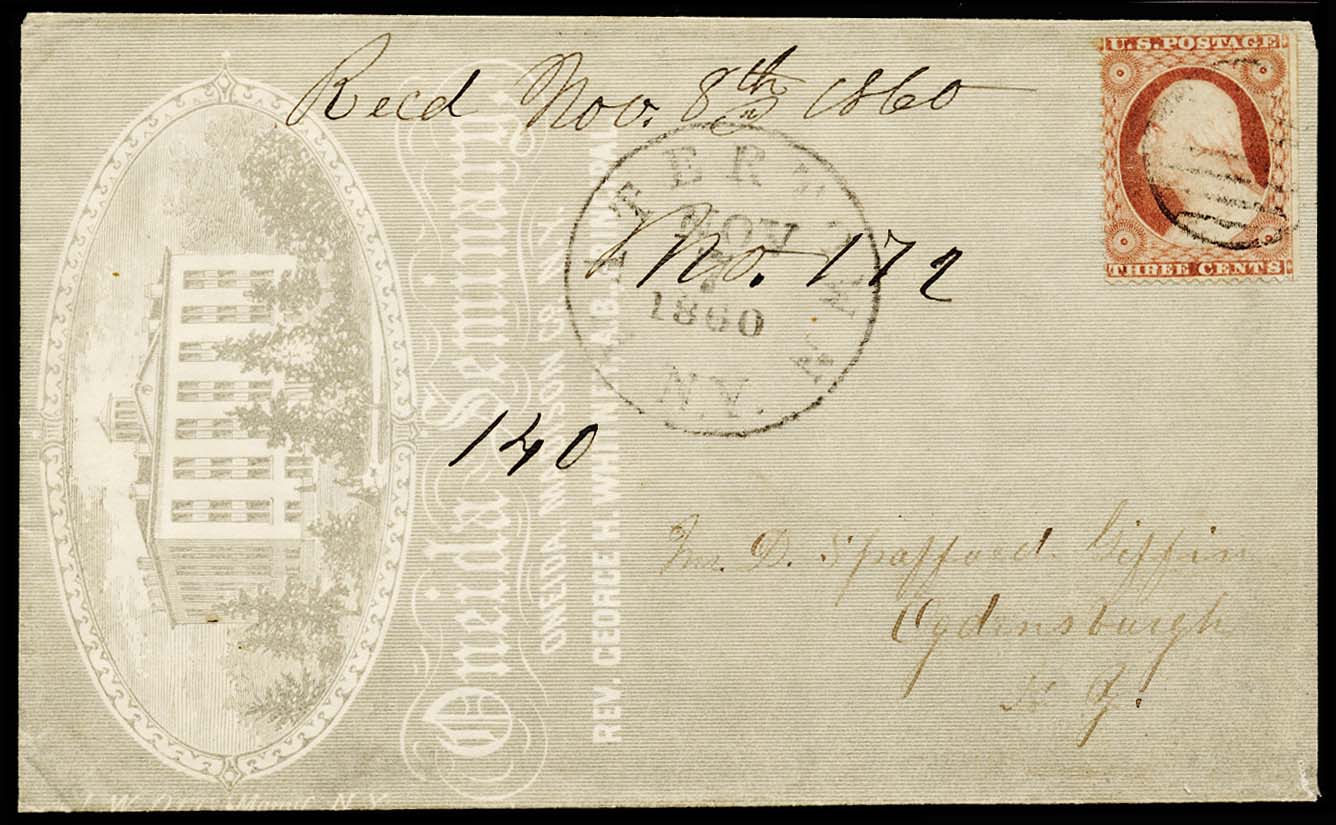 Recd Nov. 8th 1860
U.S. POSTAGE
THREE CENTS
WATERVILLE
NOV
1860
N.Y.
No. 172
140
Oneida Seminary,
ONEIDA, MADISON CO. N.Y.
REV. GEORGE H. WHITNEY, A.B. PRINCIPAL
Mr. D. Spafford Giffin
Ogdinsburgh
N. Y.
N.Y.